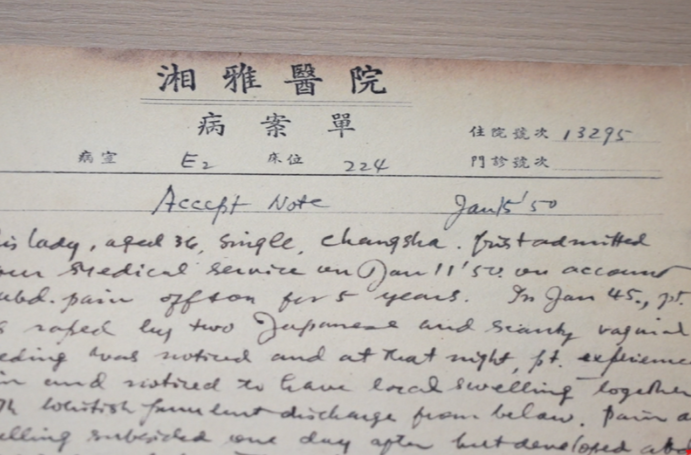 湘雅醫院
病案單
住院號次 13295
病室 E2 床位 224 門診號次
Accept Note Jan 15 '50
is lady, aged 36, single, changsha. first admitted
our medical service on Jan 11 '50. on account
abd. pain off & on for 5 years. In Jan 45., pt.
s raped by two Japanese and scanty vaginal
eding was noticed and at that night, pt. experience
in and noticed to have local swelling together
th whitish purulent discharge from below. Pain a
elling subsided one day after but developed abd